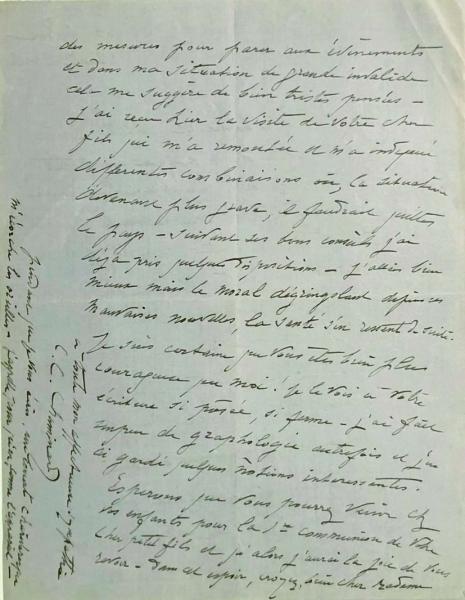 des mesures pour parer aux évènements
et dans ma situation de grande invalide
cela me suggère de bien tristes pensées –
J'ai reçu hier la visite de votre cher
fils qui m'a remontée et m'a indiqué
différentes combinaisons où, la situation
devenant plus grave, il faudrait quitter
le pays – suivant ses bons conseils j'ai
déjà pris quelques dispositions – J'allais bien
mieux mais le moral dégringolant depuis ces
mauvaises nouvelles, la santé s'en ressent de suite.
Je suis certaine que vous êtes bien plus
courageuse que moi ! Je le vois à votre
écriture si posée, si ferme – j'ai fait
un peu de graphologie autrefois et j'en
ai gardé quelques notions intéressantes.
Espérons que vous pourrez venir chez
vos enfants pour la 1re communion de votre
cher petit fils et qu'alors j'aurai la joie de vous
revoir – dans cet espoir, croyez, bien chère Madame
à toute mon affectueuse
pendant que je vous écris, un
m'écorche les oreilles –